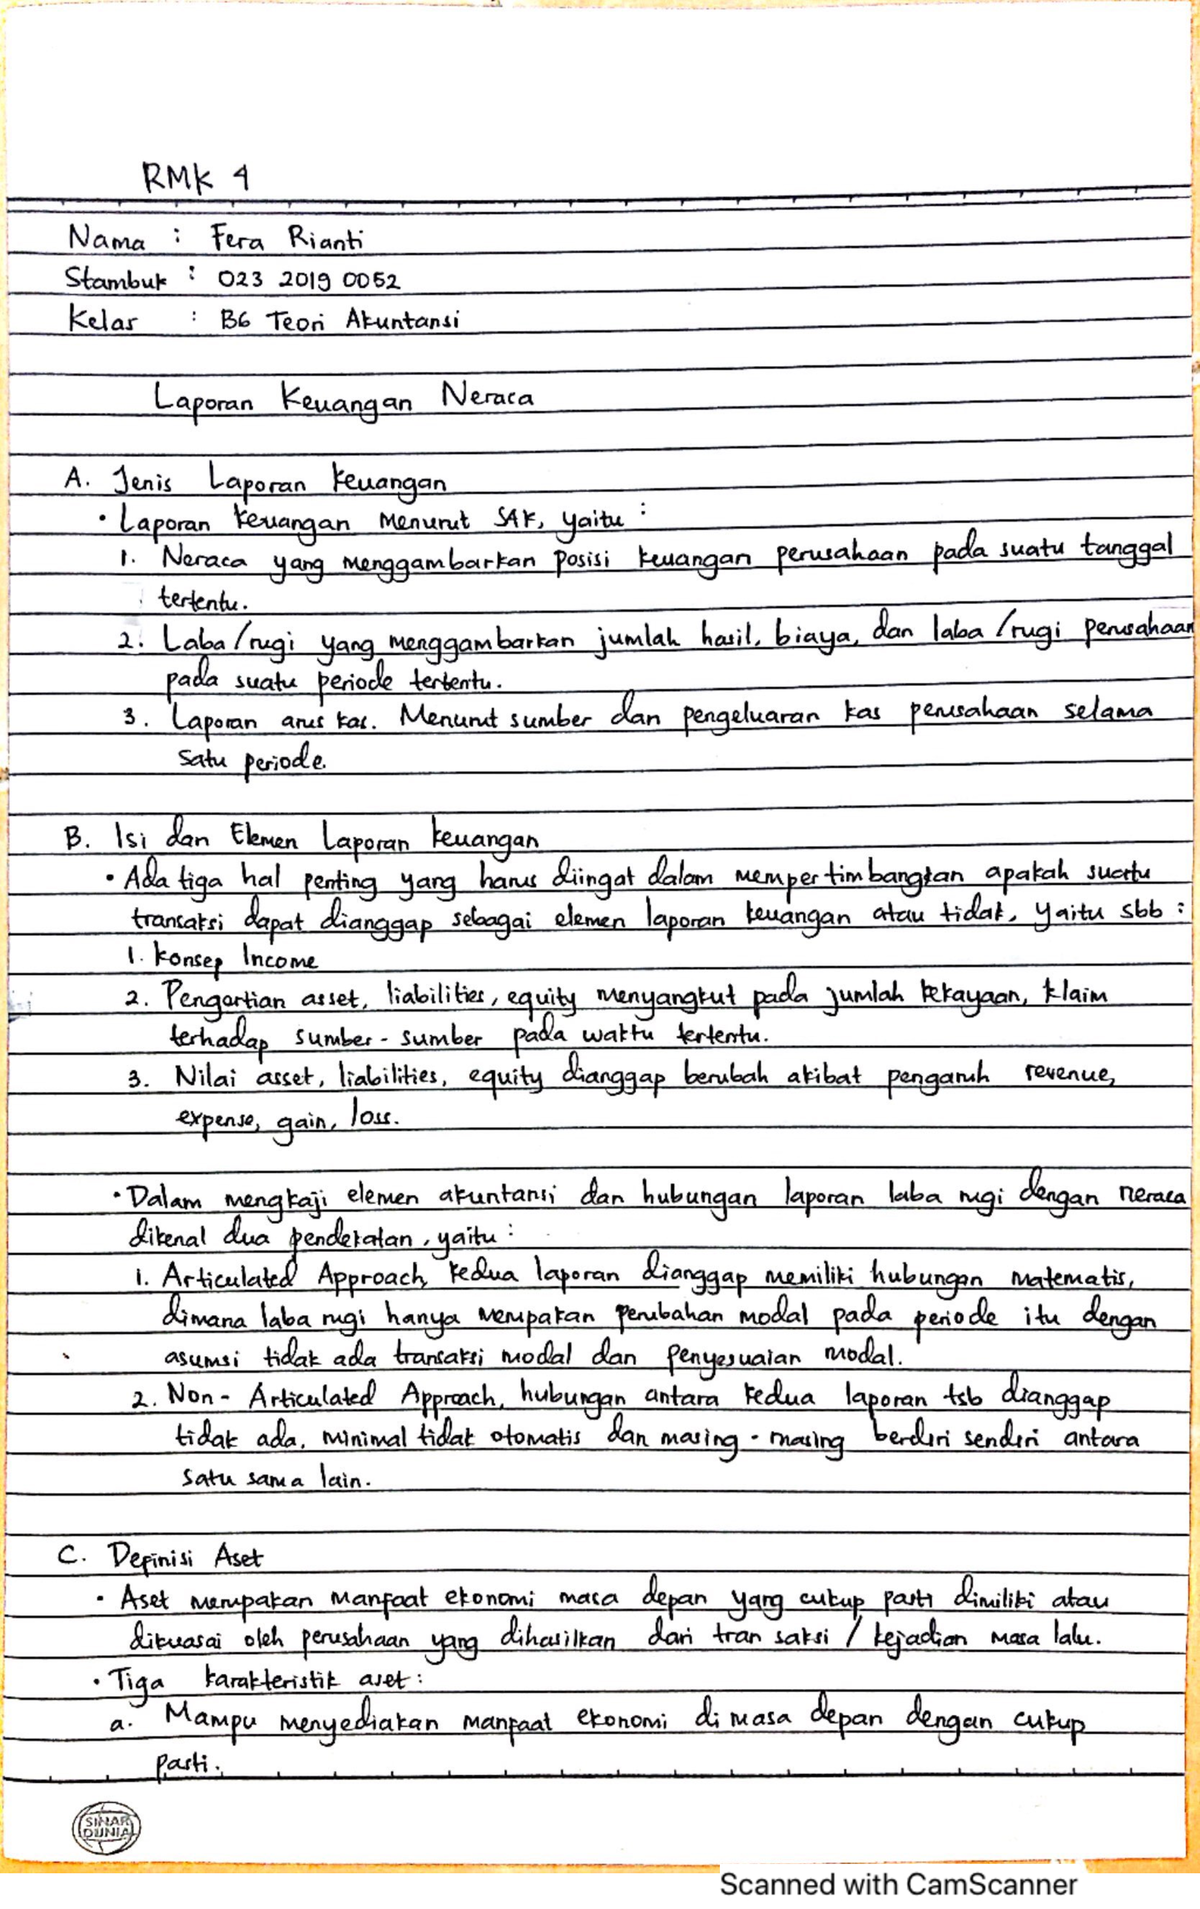 RMK 4
Nama : Fera Rianti
Stambuk : 023 2019 0052
Kelas : B6 Teori Akuntansi
Laporan Keuangan Neraca
A. Jenis Laporan Keuangan
• Laporan keuangan Menurut SAK, yaitu :
1. Neraca yang menggambarkan posisi keuangan perusahaan pada suatu tanggal
tertentu.
2. Laba/rugi yang menggambarkan jumlah hasil, biaya, dan laba/rugi perusahaan
pada suatu periode tertentu.
3. Laporan arus kas. Menurut sumber dan pengeluaran kas perusahaan selama
satu periode.
B. Isi dan Elemen Laporan keuangan
• Ada tiga hal penting yang harus diingat dalam mempertimbangkan apakah suatu
transaksi dapat dianggap sebagai elemen laporan keuangan atau tidak, yaitu sbb :
1. Konsep Income
2. Pengertian asset, liabilities, equity menyangkut pada jumlah kekayaan, klaim
terhadap sumber-sumber pada waktu tertentu.
3. Nilai asset, liabilities, equity dianggap berubah akibat pengaruh revenue,
expense, gain, loss.
• Dalam mengkaji elemen akuntansi dan hubungan laporan laba rugi dengan neraca
dikenal dua pendekatan, yaitu :
1. Articulated Approach, kedua laporan dianggap memiliki hubungan matematis,
dimana laba rugi hanya merupakan perubahan modal pada periode itu dengan
asumsi tidak ada transaksi modal dan penyesuaian modal.
2. Non-Articulated Approach, hubungan antara kedua laporan tsb dianggap
tidak ada, minimal tidak otomatis dan masing-masing berdiri sendiri antara
satu sama lain.
C. Definisi Aset
• Aset merupakan manfaat ekonomi masa depan yang cukup pasti dimiliki atau
dikuasai oleh perusahaan yang dihasilkan dari transaksi / kejadian masa lalu.
• Tiga karakteristik aset :
a. Mampu menyediakan manfaat ekonomi di masa depan dengan cukup
pasti.
SINAR
DUNIA
Scanned with CamScanner